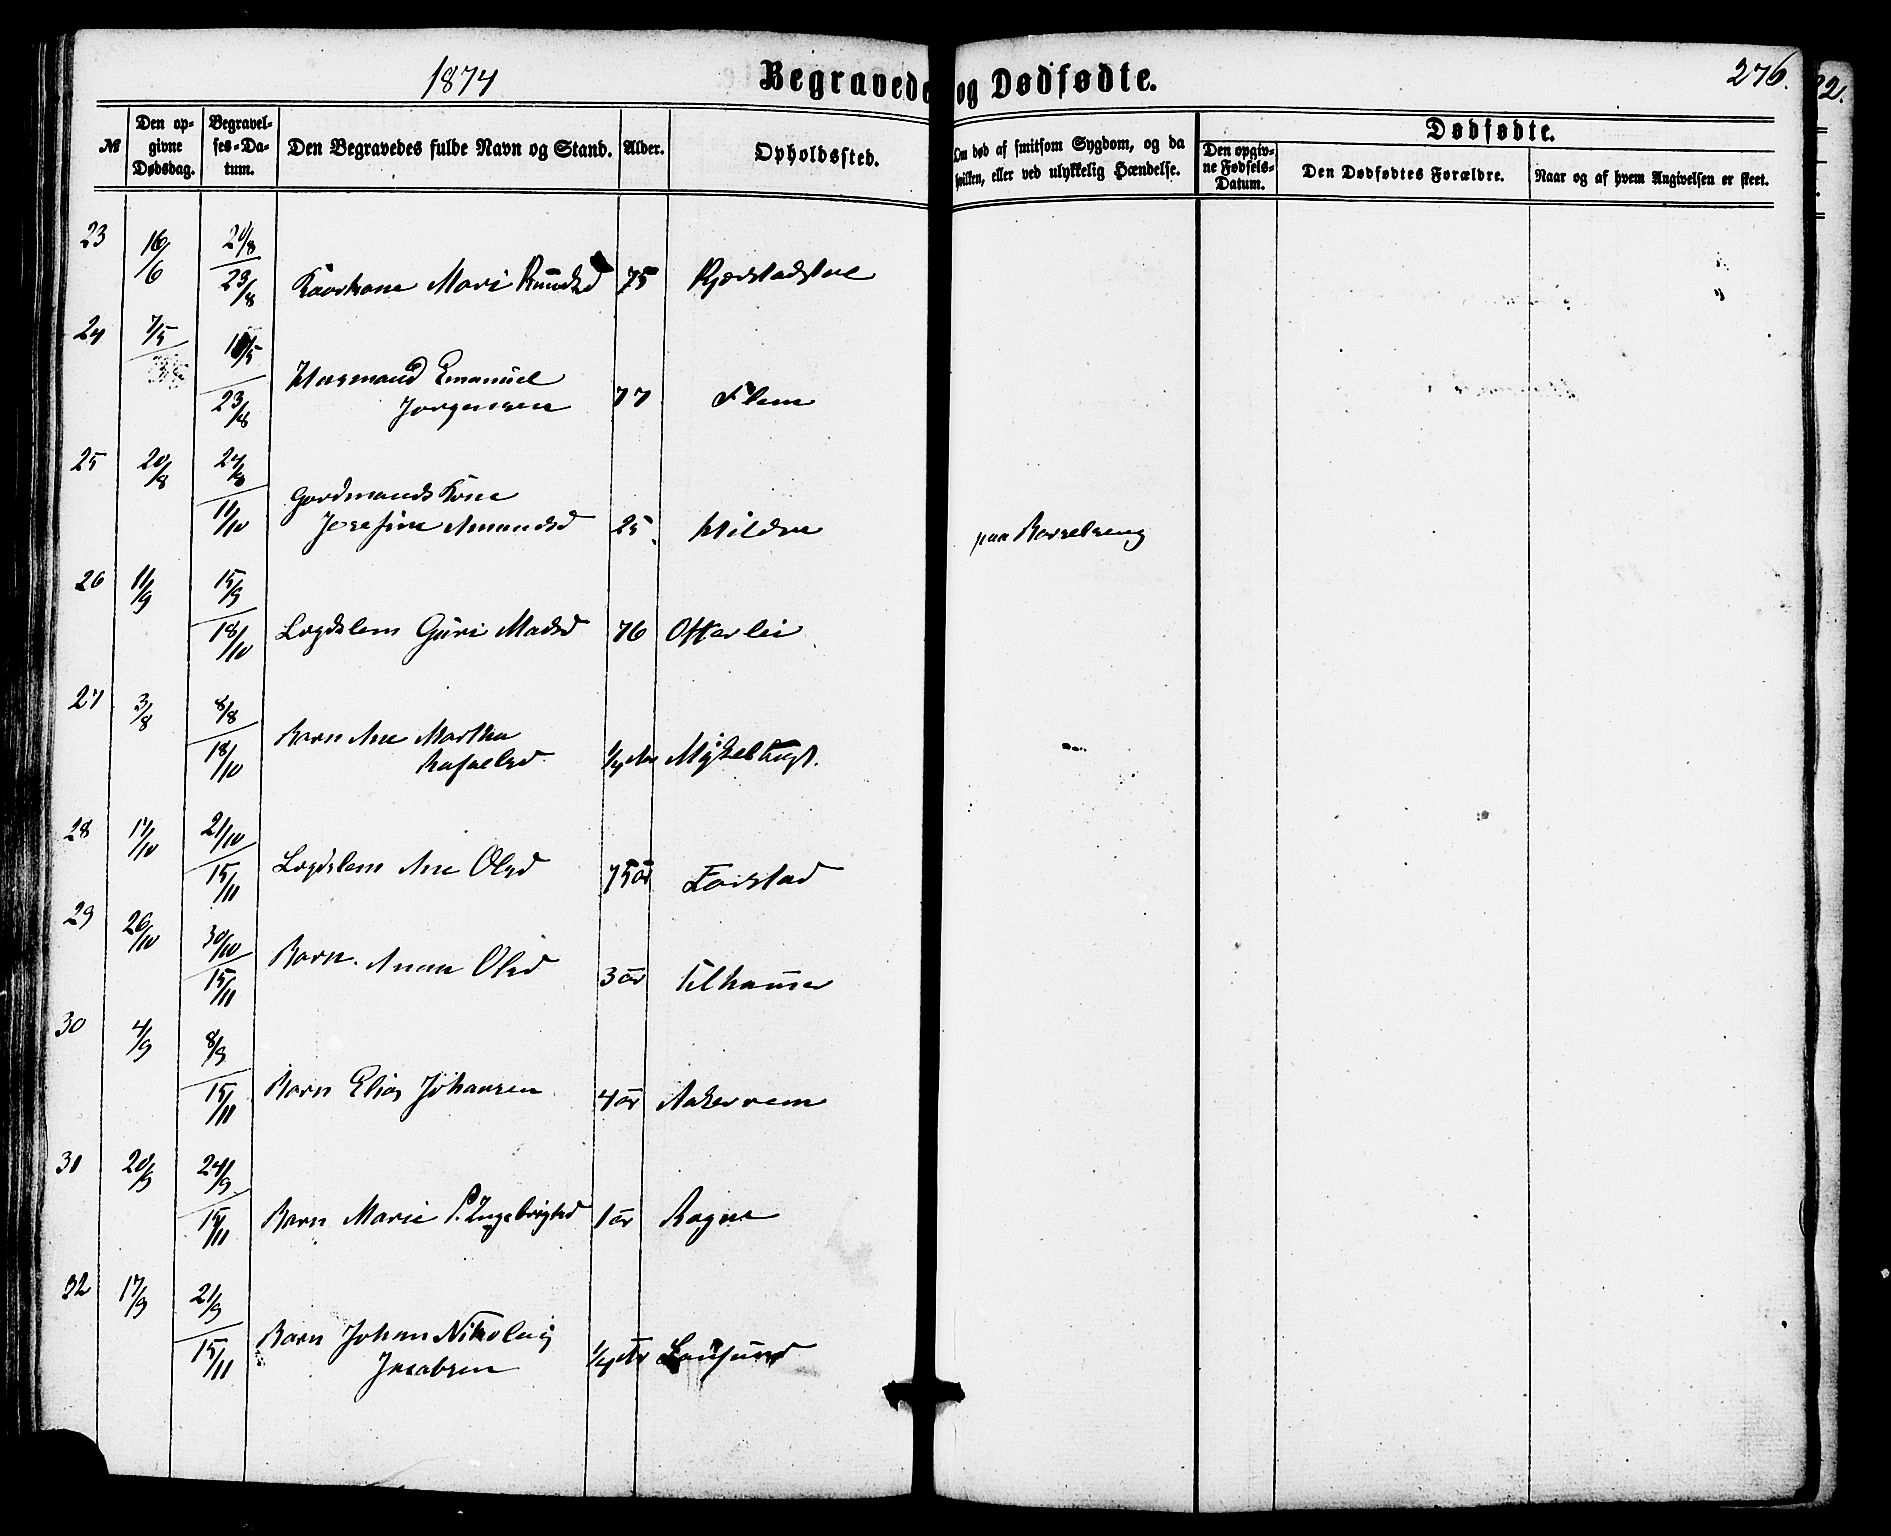 1874
Begravede og Dødfødte.
276.
№
Den opgivne Dødsdag.
Begravelses-Datum.
Den Begravedes fulde Navn og Stand.
Alder.
Opholdssted.
Om død af smitsom Sygdom, og da hvilken, eller ved ulykkelig Hændelse.
Dødfødte.
Den opgivne Fødsels-Datum.
Den Dødfødtes Forældre.
Naar og af hvem Angivelsen er skeet.
23 16/6 20/8 23/8 Mari Knudsd 75
24 7/5 23/8 Huusmand Emanuel
Jørgensen 77 Flem
25 20/8 24/8 11/10 Gaardmands Kone
Josefine Amundsd 25 Hildre paa Barselseng
26 11/9 15/9 18/10 Lægdslem Guri Madsd 76
27 3/8 8/8 18/10 Barn Ane Martha
Rafaelsd 1/4 Aar Myklebust.
28 17/10 21/10 15/11 Lægdslem Ane Olsd 75 år
29 26/10 30/10 15/11 Barn Anne Olsd 3 år
30 4/9 8/9 15/11 Barn Elias Johansen 4 år Aakerrem
31 20/9 24/9 15/11 Barn Marie P. Ingebrigtsd 1 år Rogne
32 17/9 21/9 15/11 Barn Johan Nikolai
Jacobsen 1/4 Aar